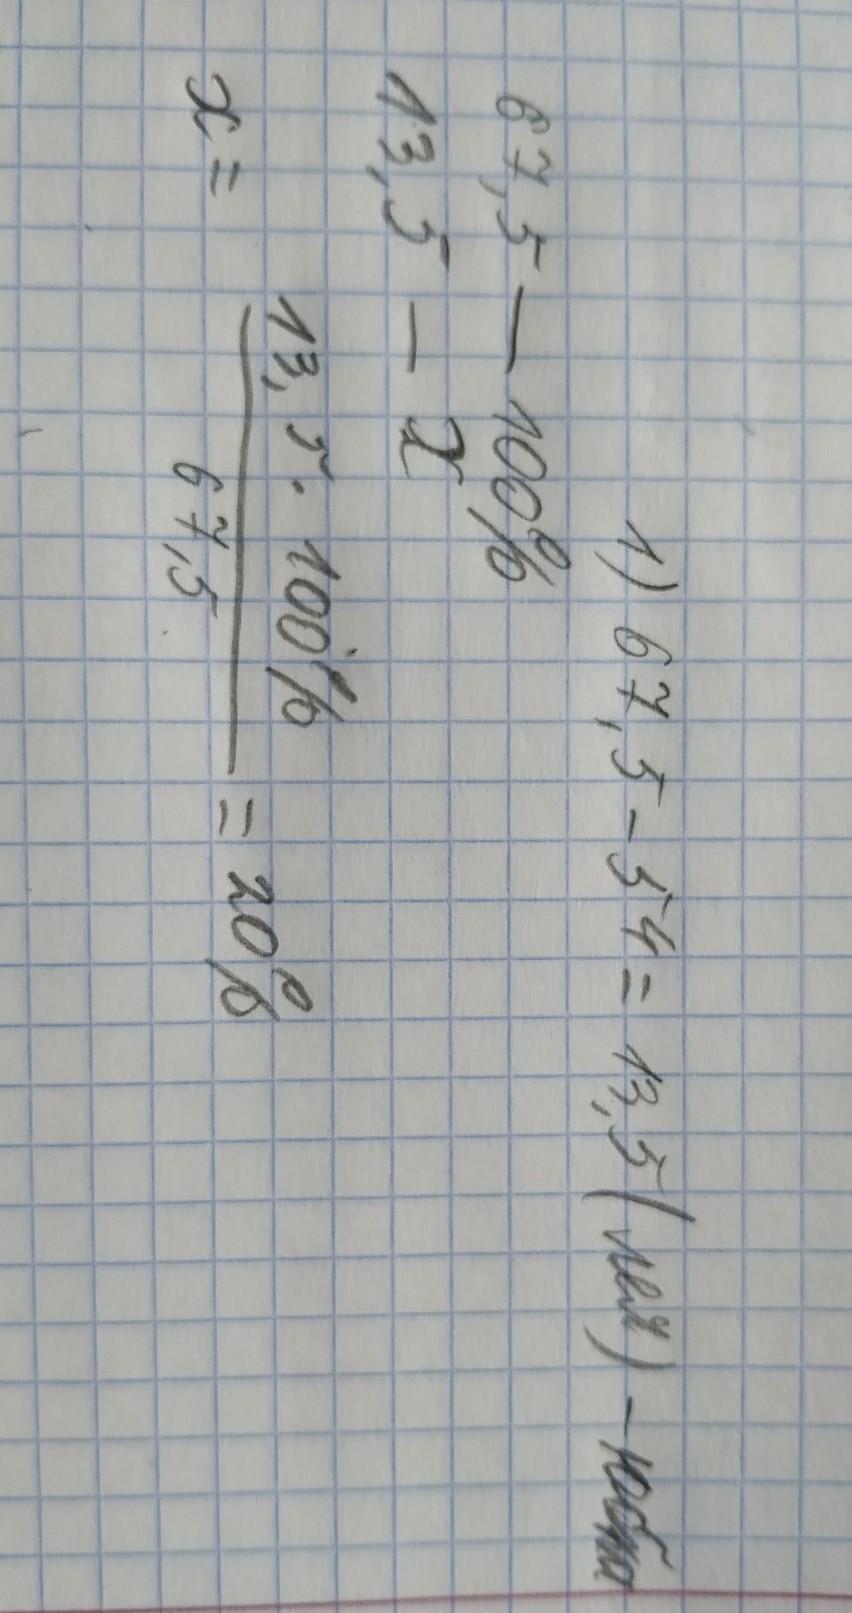 1) 67,5 - 54 = 13,5 (лей) -
67,5 — 100%
13,5 — x
x = 13,5 · 100% / 67,5 = 20%